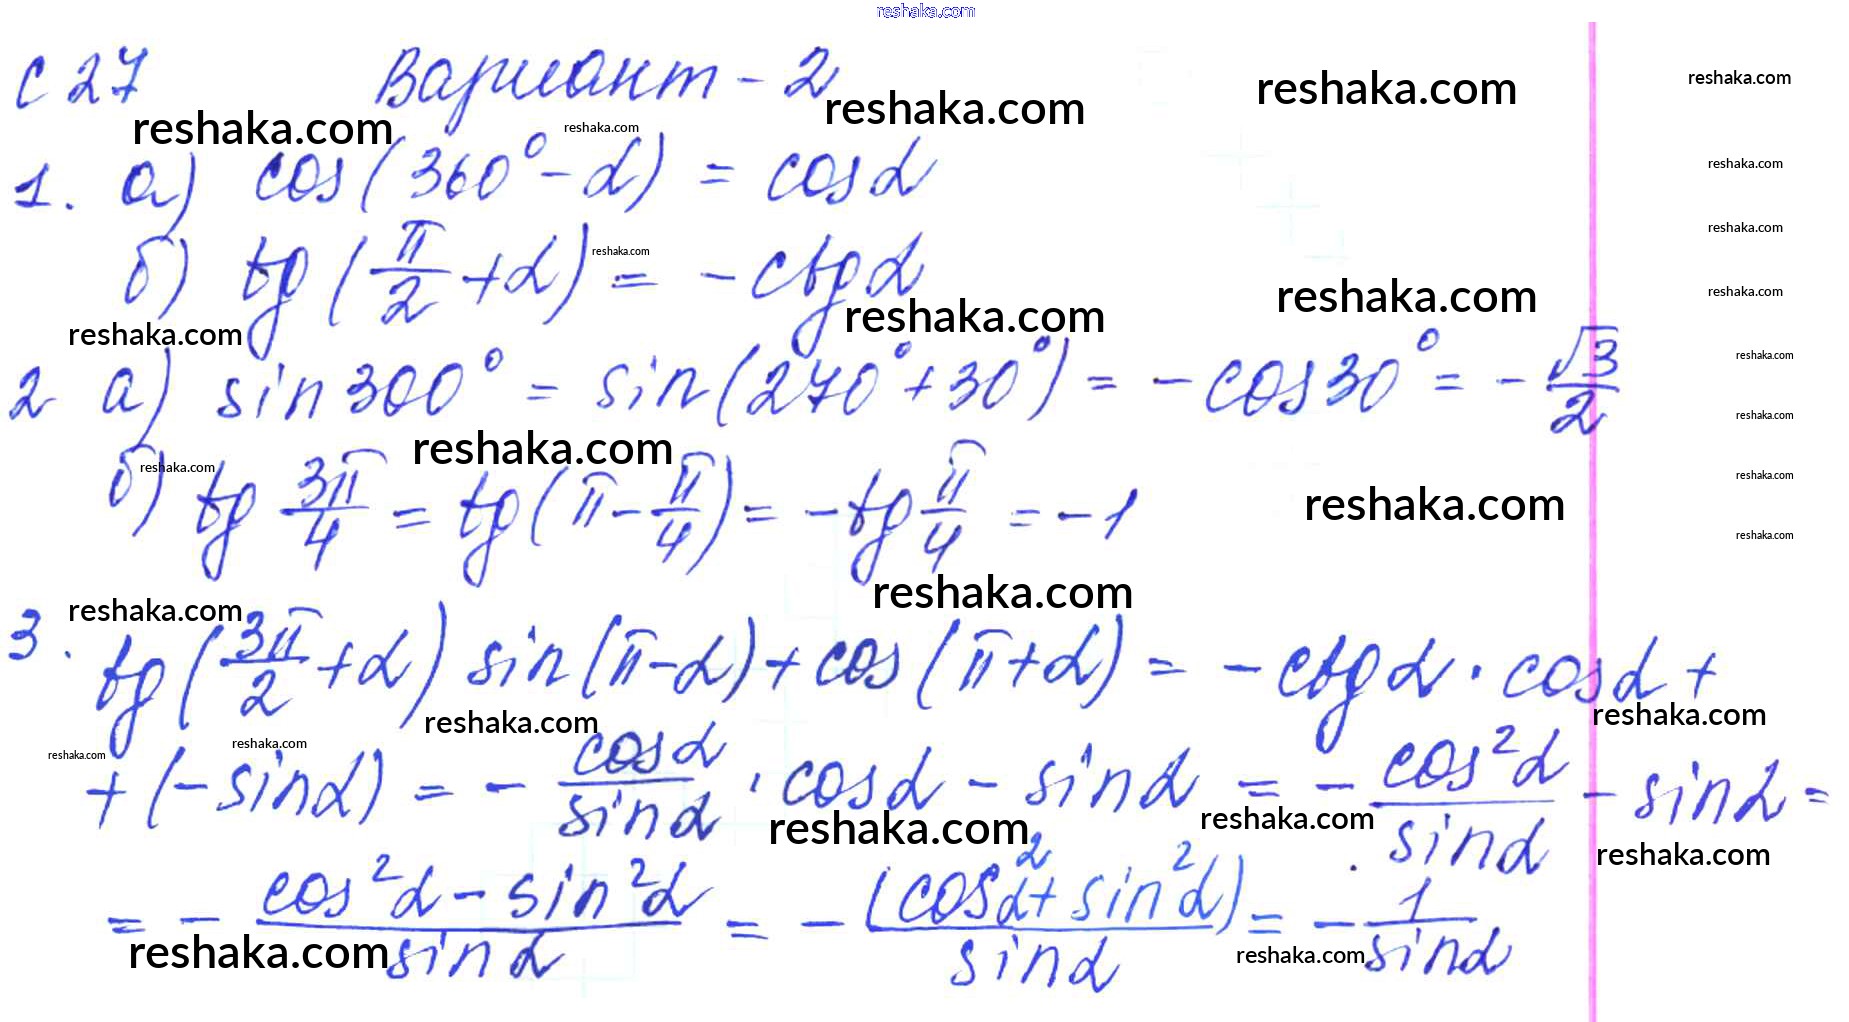 reshaka.com
С 27 Вариант - 2
reshaka.com reshaka.com reshaka.com reshaka.com reshaka.com
1. а) cos(360° - α) = cosα
reshaka.com
reshaka.com
б) tg(π/2 + α) = -ctgα
reshaka.com
reshaka.com reshaka.com reshaka.com reshaka.com
2 а) sin300° = sin(270° + 30°) = -cos30° = -√3/2
reshaka.com
reshaka.com
reshaka.com reshaka.com
б) tg 3π/4 = tg(π - π/4) = -tg π/4 = -1
reshaka.com
reshaka.com
reshaka.com
reshaka.com reshaka.com
3. tg(3π/2 + α) sin(π-α) + cos(π+α) = -ctgα · cosα +
reshaka.com reshaka.com
reshaka.com reshaka.com
+ (-sinα) = - cosα/sinα · cosα - sinα = - cos²α/sinα - sinα =
reshaka.com reshaka.com reshaka.com
= - cos²α - sin²α/sinα = - (cos²α + sin²α)/sinα = - 1/sinα
reshaka.com reshaka.com